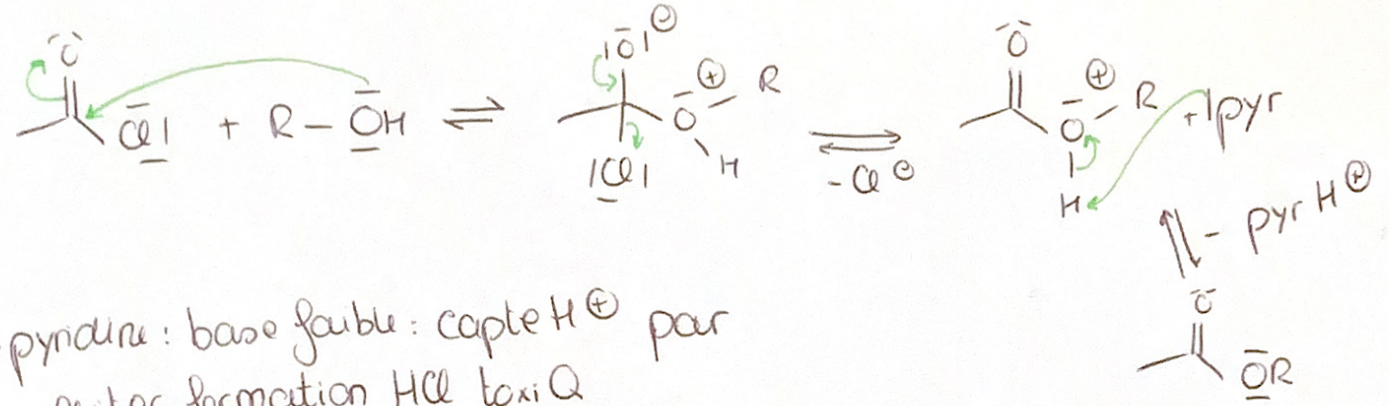 O |O|⊖ O
Cl| + R – OH ⇌ O⊕ R ⇌ O⊕ R + |pyr
|Cl| H - Cl⊖ H
⇌ - pyrH⊕
O
OR
pyridine : base faible : capte H⊕ pour
formation HCl toxiQ